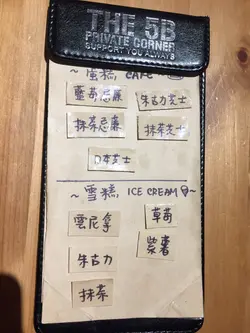 THE 5B
PRIVATE CORNER
SUPPORT YOU ALWAYS
~蛋糕, CAFE~
藍莓忌廉 朱古力芝士
抹茶忌廉 抹茶芝士
日本芝士
~雪糕, ICE CREAM~
雲尼拿 草莓
朱古力 紫薯
抹茶